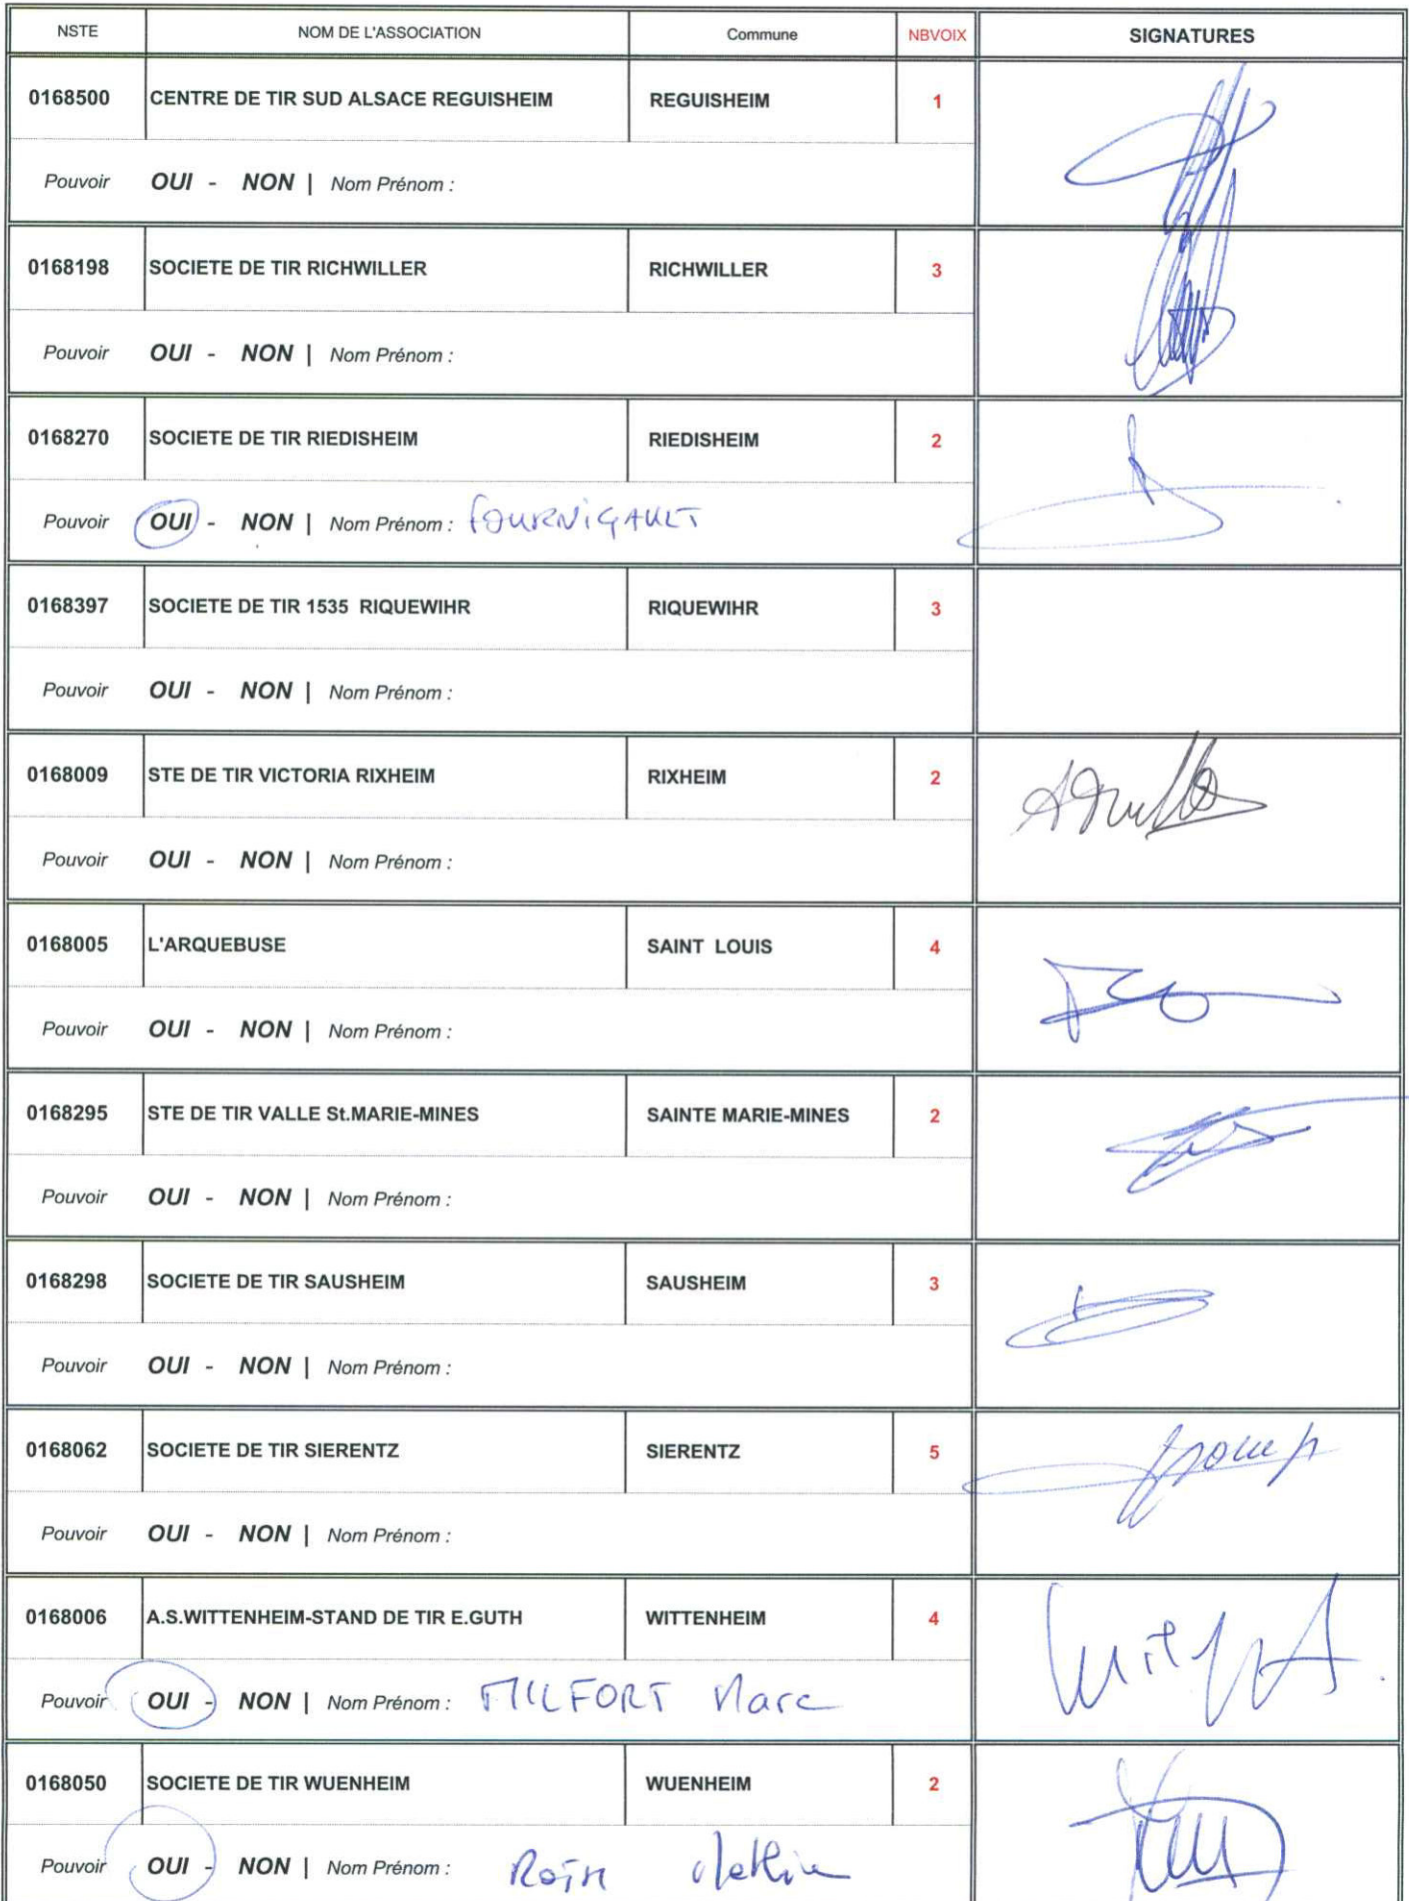 NSTE NOM DE L'ASSOCIATION Commune NBVOIX SIGNATURES
0168500 CENTRE DE TIR SUD ALSACE REGUISHEIM REGUISHEIM 1
Pouvoir OUI - NON | Nom Prénom :
0168198 SOCIETE DE TIR RICHWILLER RICHWILLER 3
Pouvoir OUI - NON | Nom Prénom :
0168270 SOCIETE DE TIR RIEDISHEIM RIEDISHEIM 2
Pouvoir OUI - NON | Nom Prénom : FOURNIGAULT
0168397 SOCIETE DE TIR 1535 RIQUEWIHR RIQUEWIHR 3
Pouvoir OUI - NON | Nom Prénom :
0168009 STE DE TIR VICTORIA RIXHEIM RIXHEIM 2
Pouvoir OUI - NON | Nom Prénom :
0168005 L'ARQUEBUSE SAINT LOUIS 4
Pouvoir OUI - NON | Nom Prénom :
0168295 STE DE TIR VALLE St.MARIE-MINES SAINTE MARIE-MINES 2
Pouvoir OUI - NON | Nom Prénom :
0168298 SOCIETE DE TIR SAUSHEIM SAUSHEIM 3
Pouvoir OUI - NON | Nom Prénom :
0168062 SOCIETE DE TIR SIERENTZ SIERENTZ 5
Pouvoir OUI - NON | Nom Prénom :
0168006 A.S.WITTENHEIM-STAND DE TIR E.GUTH WITTENHEIM 4
Pouvoir OUI - NON | Nom Prénom : MILFORT Marc
0168050 SOCIETE DE TIR WUENHEIM WUENHEIM 2
Pouvoir OUI - NON | Nom Prénom :